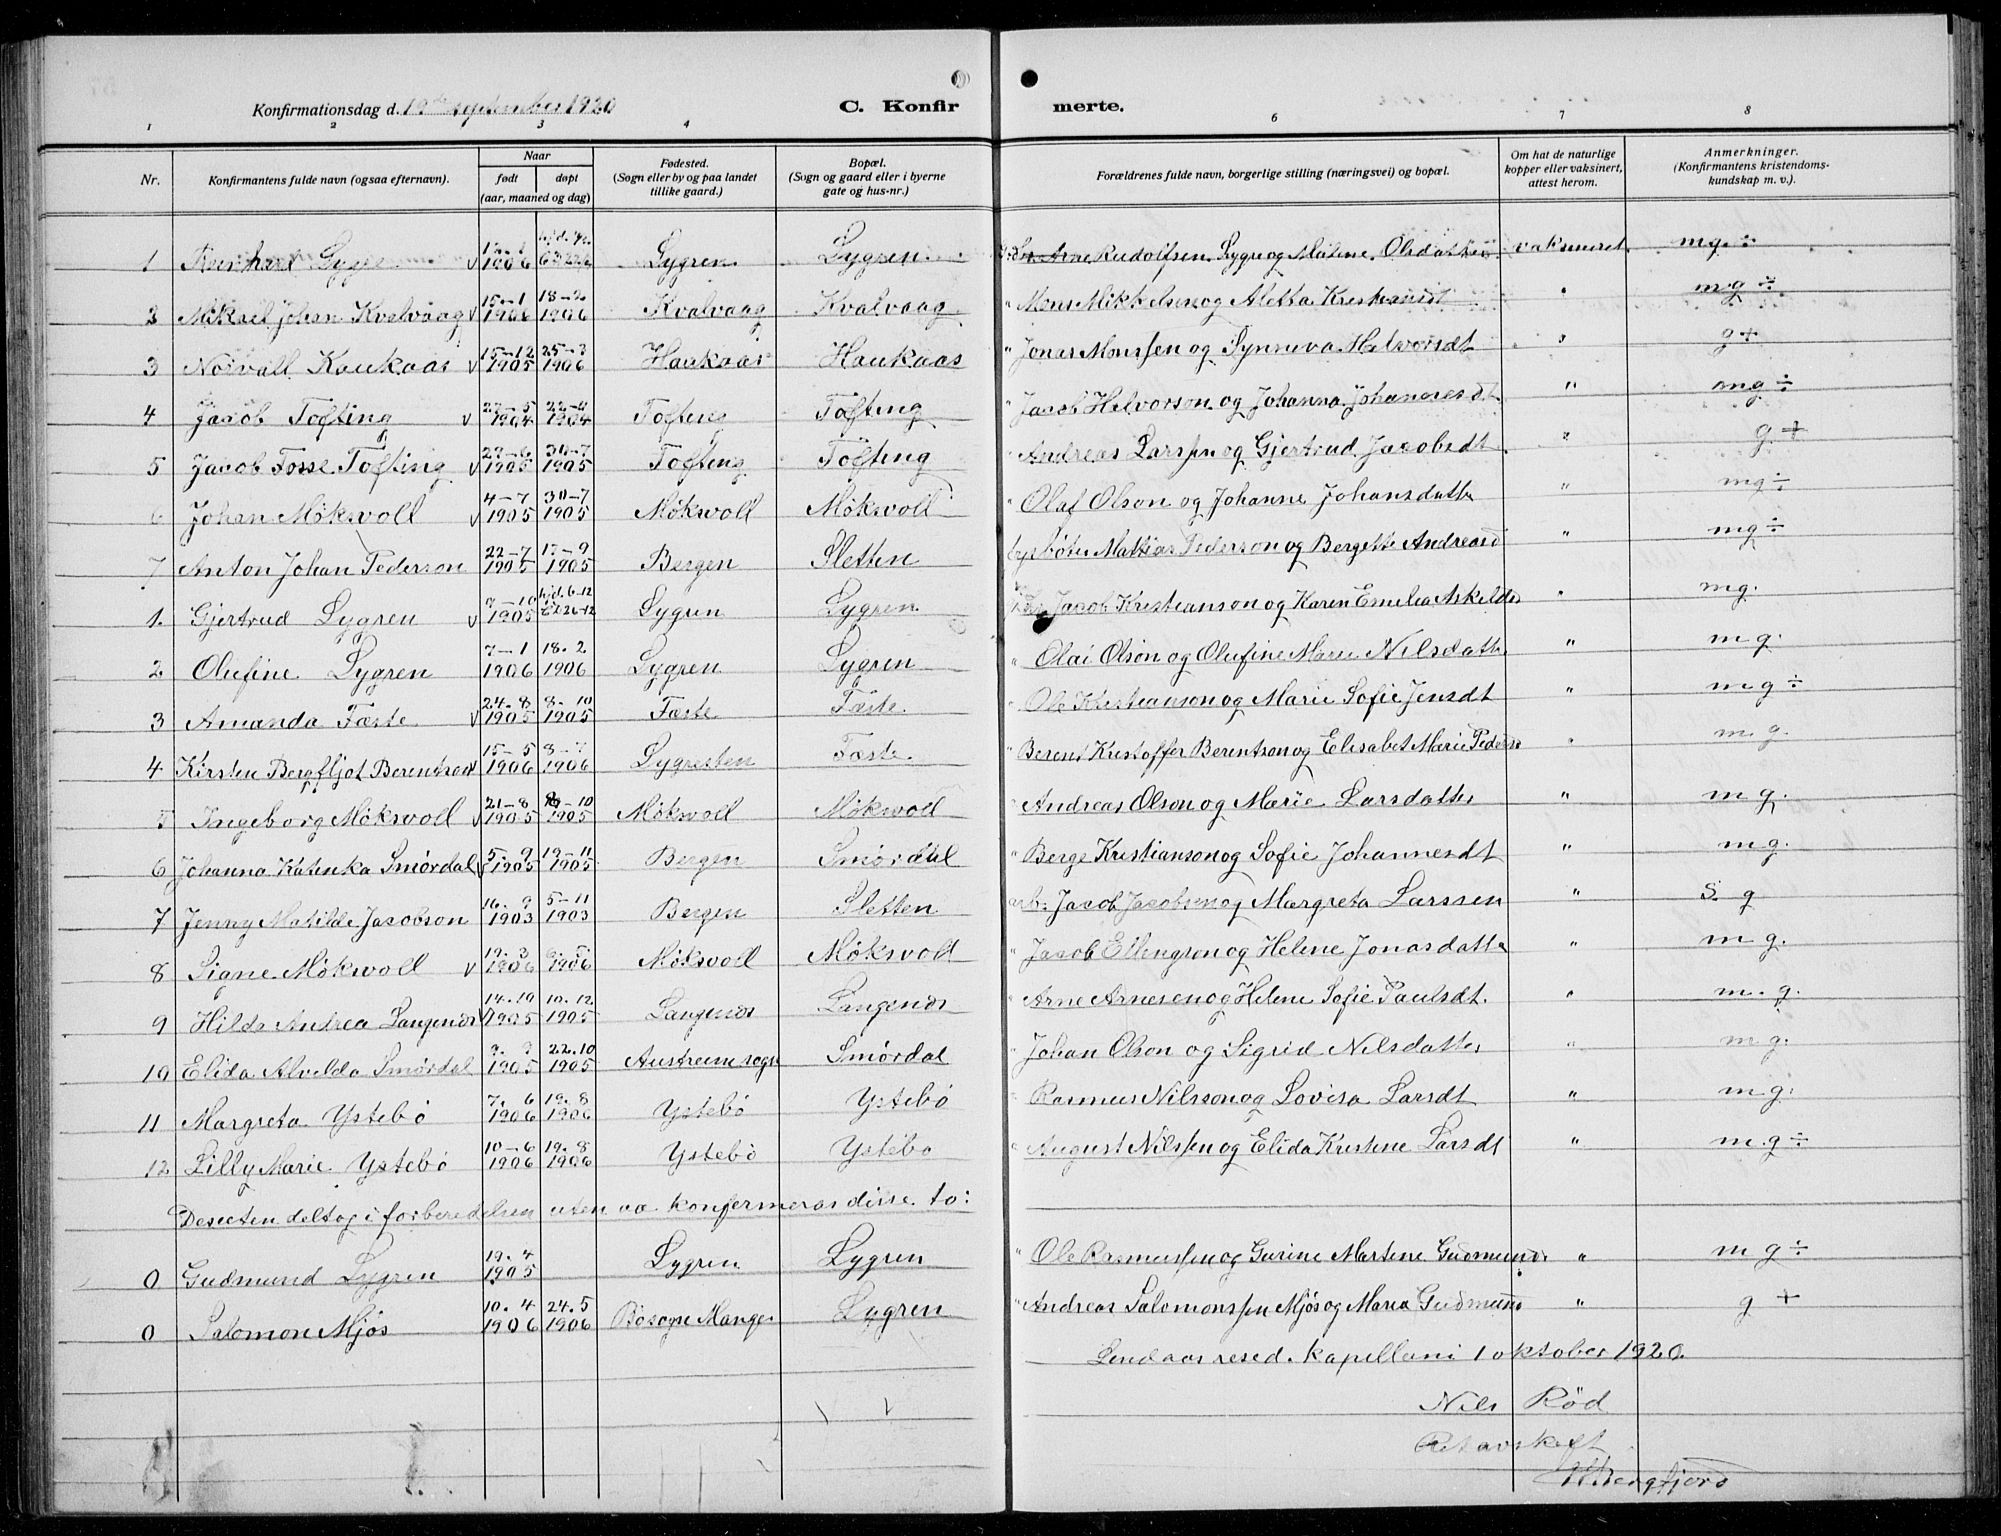 Konfirmationsdag d. 19de september 1920 C. Konfir merte.
1 2 3 4 5 6 7 8
Nr. Konfirmantens fulde navn (ogsaa efternavn). Naar født døpt (aar, maaned og dag) Fødested. (Sogn eller by og paa landet tillike gaard.) Bopæl. (Sogn og gaard eller i byerne gate og hus-nr.) Forældrenes fulde navn, borgerlige stilling (næringsvei) og bopæl. Om hat de naturlige kopper eller vaksinert, attest herom. Anmerkninger. (Konfirmantens kristendoms-kundskap m. v.).
1 Reinhart 1906 Lygren Lygren Arne Rudolfsen Lygre og Malene Olsdatter vaksineret mg. ÷
2 Mikael Johan Kvalvaag v 15-1 1906 18-2 1906 Kvalvaag Kvalvaag " Mons Mikkelsen og Aletta Kristiansdt " mg ÷
3 Norvall Haukaas v 15-12 1905 25-3 1906 Haukaas Haukaas " Jonas Monssen og Synneva Halvorsdt " g +
4 Jacob Tofting v 27-5 1904 1904 Tofting Tofting " Jacob Helvorson og Johanna Johannesdt " mg ÷
5 Jacob Fosse Tofting v 29-6 1905 30-7 1905 Tofting Tofting " Andreas Larssen og Gjertrud Jacobsdt " g +
6 Johan Mökwoll v 4-7 1905 30-7 1905 Mökwoll Mökwoll " Olaf Olson og Johanne Johansdatte " mg ÷
7 Anton Johan Pederson 22-7 1905 17-9 1905 Bergen Sletten Mattias Pederson og Bergette Andreasd " mg ÷
1. Gjertrud Lygren v 7-10 1905 hjd. 6-12 26-12 Lygren Lygren Jacob Kristianson og Karen Emelia Askelds " mg.
2 Olufine Lygren 7-1 1906 18.2 1906 Lygren Lygren " Olai Olson og Olufine Marie Nilsdatte " m g.
3 Amanda Fæste v 24.8 1905 8.10 1905 Fæste Fæste. " Ole Kristianson og Marie Sofie Jensdt " m g ÷
4 Kirsten Bergfljot Berentson v 15-5 1906 8-7 1906 Lygresten Fæste. " Berent Kristoffer Berentson og Elisabet Marie Peders " m g.
5 Ingeborg Mökwoll v 21-8 1905 10 1905 Mökwoll Mökwoll " Andreas Olson og Marie Larsdatter " m g.
6 Johanna Katinka Smördal v 5.9 1905 19-11 1905 Bergen Smördal " Berge Kristianson og Sofie Johannesdt " m g.
7 Jenny Matilde Jacobson 16.9 1903 5-11 1903 Bergen Sletten arb: Jacob Jacobsen og Margreta Larssen " S g
8 Signe Mökwoll v 19.3 1906 6.5 1906 Mökwoll Mökwoll " Jacob Ellengson og Helene Jonasdatte " m g.
9 Hilda Andrea Langenæs v 14.10 1905 10.12 1905 Langenæs Langenæs " Arne Arnesen og Helene Sofie Paulsdt. " m. g.
10 Elida Alvelda Smördal 1905 22.10 1905 Austreimsogn Smördal " Johan Olson og Sigrid Nilsdatter " m g.
11 Margreta Ystebö 7.6 1906 19.8 1906 Ystebö Ystebö " Rasmus Nilsson og Lovisa Larsdt " m g.
12 Lilly Marie Ystebö 10-6 1906 19.8 1906 Ystebö Ystebö " August Nilssen og Elida Kristine Larsdt " m. g ÷
Desuten deltog i forberedelsen uten aa konfermeras disse to:
0 Gudmund Lygren 19.4 1905 Lygren Lygren " Ole Rasmussen og Gurine Martine Gudmunds " m g ÷
0 Salomon Mjös 10.4 1906 24.5 1906 Bösogn Manger Lygren " Andreas Salomonssen Mjös og Maria Gudmund " g +
Lindaas resid. kapellani 1 oktober 1920.
Nils Röd
Ret avskrift